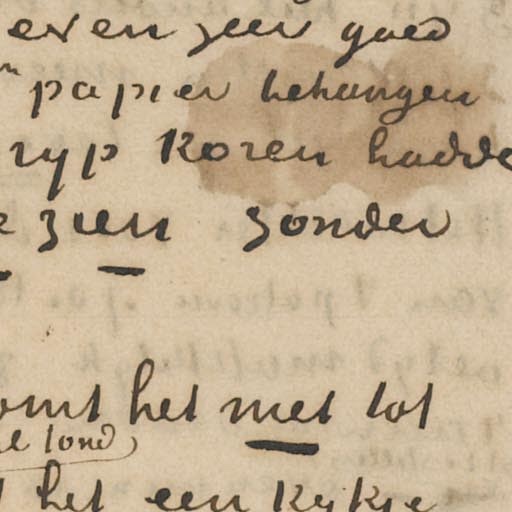 even zeer goed
papier behangen
ryp koren hadde
zien zonder
omt het met tot
het een kykje